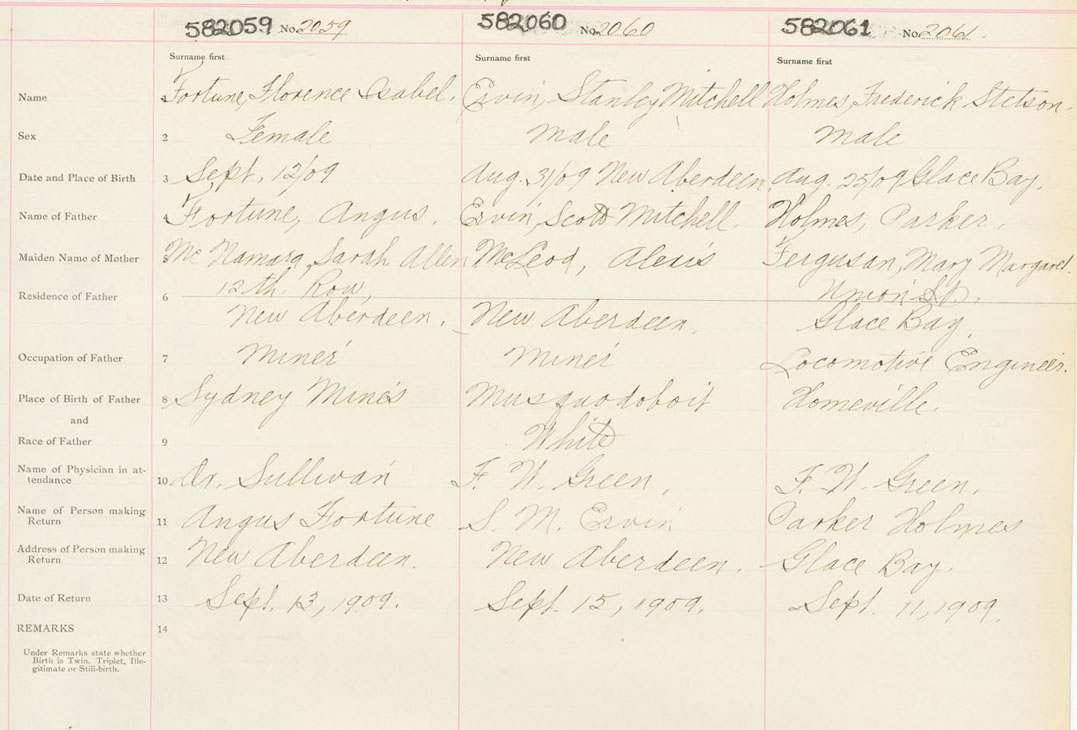 582059 No. 2059 582060 No. 2060 582061 No. 2061.
Surname first Surname first Surname first
Name Fortune, Florence Isabel. Ervin, Stanley Mitchell Holmes, Frederick Stetson.
Sex 2 Female Male Male
Date and Place of Birth 3 Sept. 12/09 Aug. 31/09 New Aberdeen Aug. 25/09 Glace Bay.
Name of Father Fortune, Angus. Ervin, Scott Mitchell. Holmes, Parker.
Maiden Name of Mother 5 McNamara, Sarah Allen McLeod, Alexis Ferguson, Mary Margaret.
Residence of Father 6 12th Row, Union St.,
New Aberdeen. New Aberdeen. Glace Bay.
Occupation of Father 7 Miner Miner Locomotive Engineer.
Place of Birth of Father 8 Sydney Mines Musquodoboit Homeville.
and
Race of Father 9 White
Name of Physician in at-
tendance 10 Dr. Sullivan F. W. Green, F. W. Green.
Name of Person making
Return 11 Angus Fortune S. M. Ervin Parker Holmes
Address of Person making
Return 12 New Aberdeen. New Aberdeen. Glace Bay.
Date of Return 13 Sept. 13, 1909. Sept. 15, 1909. Sept. 11, 1909.
REMARKS 14
Under Remarks state whether
Birth is Twin. Triplet, Ille-
gitimate or Still-birth.